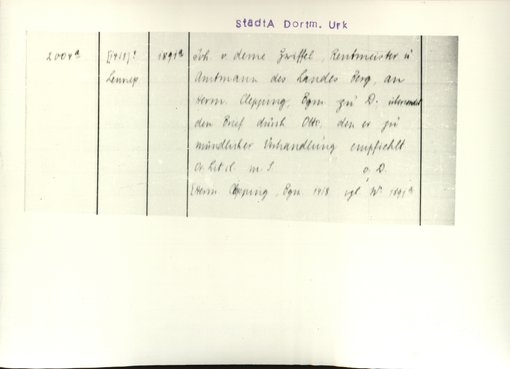 StadtA Dortm. Urk
2004a [1418]? 1891a Joh. v. deme Zwiffel, Rentmeister u
Lennep Amtmann des Landes Berg, an
Herm. Clepping, Bgm zu D. übersendet
den Brief durch Otto, den er zu
mündlicher Verhandlung empfiehlt
Or. lit. cl. m. S. v. D.
[Herm. Clepping, Bgm. 1418 vgl. No 1891a